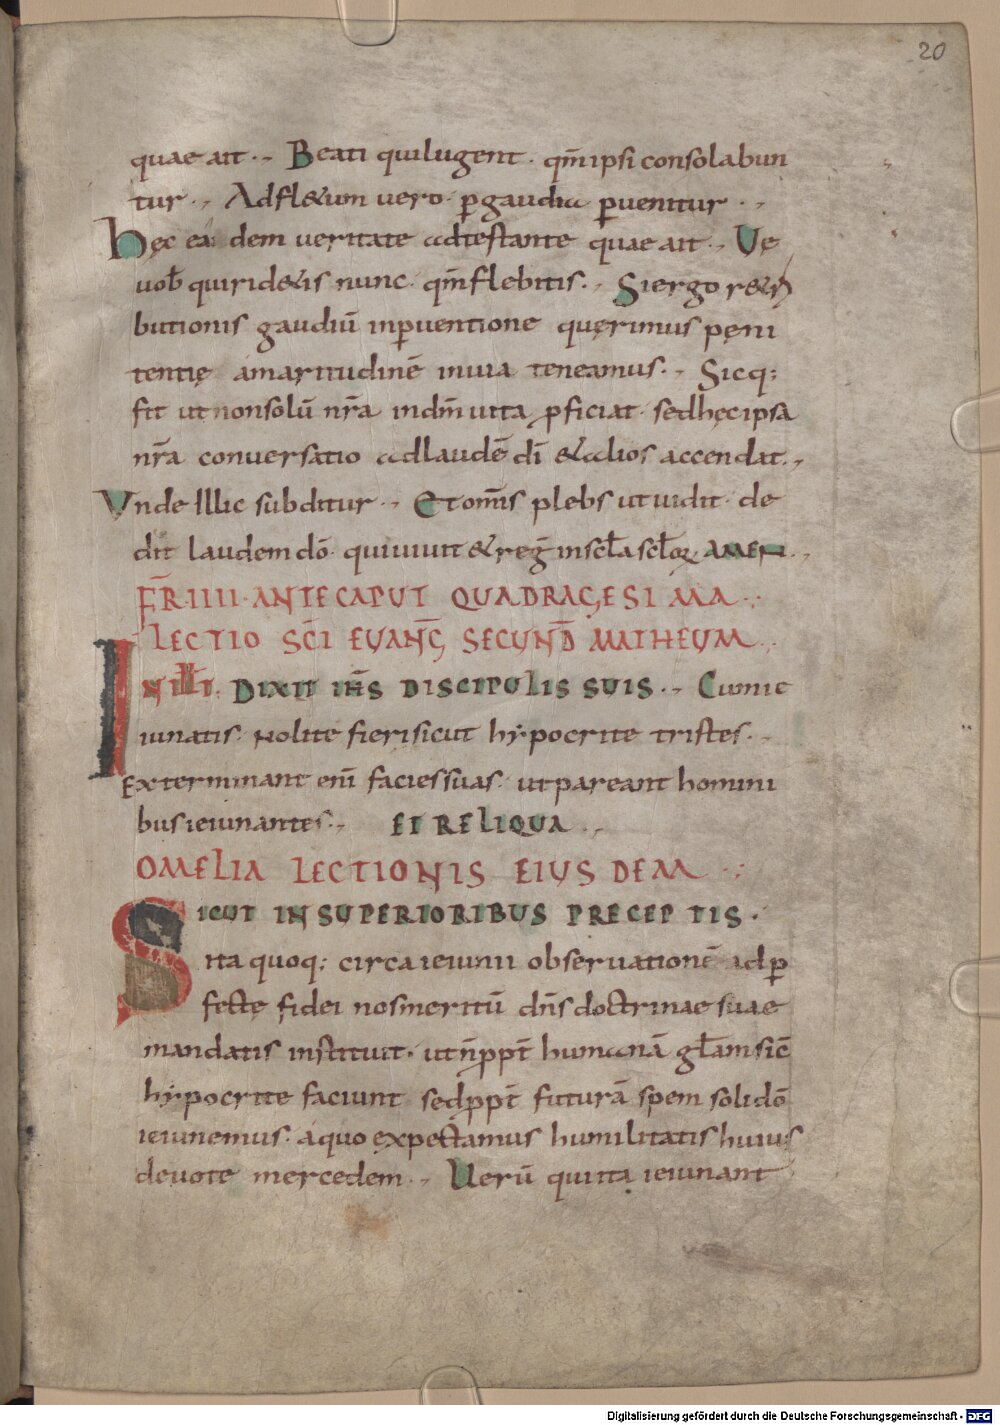 20
quae ait · Beati qui lugent · qm̄ ipsi consolabun
tur · Ad fl&um vero p̱ gaudia p̱uenitur ·
hęc ea dem veritate adtestante quae ait · Vę
uob̄ qui rid&is nunc · qm̄ flebitis · Si ergo r&ri
butionis gaudiū inp̱uentione querimus pęni
tentię amaritudinē inuia teneamus · Sicq;
fit ut non solū nr̄a indm̄ uita ꝓficiat · sed hęc ipsa
nr̄a conversatio ad laudē dī & alios accendat ·
Vnde illic subditur · Et om̄is plebs ut uidit · de
dit laudem dō · qui uiuit & reḡ in sc̄la sc̄loꝝ AMEN ·
FR̄ · IIII · ANTE CAPUT QUADRAGESIMA
LECTIO SC̄I EUANḠ SECUND̄ MATHEUM
IN ILL̄ T̄ · DIXIT IH̄S DISCIPULIS SUIS · Cum ie
iunatis · Nolite fieri sicut hẏpocrite tristes ·
Exterminant enī facies suas · ut pareant homini
bus ieiunantes · ET RELIQUA
OMELIA LECTIONIS EIUS DEM
SICUT IN SUPERIORIBUS PRECEPTIS ·
ita quoq; circa ieiunii observationē ad p̱
fectę fidei nos meritū dn̄s doctrinae suae
mandatis instituit · ut n̄ ꝓpt̄ humanā gl̄am sic̄
hẏpocrite faciunt sed ꝓpt̄ futurā spem solidō
ieiunemus · a quo expectamus humilitatis huius
devote mercedem · Uerū qui ita ieiunant
Digitalisierung gefördert durch die Deutsche Forschungsgemeinschaft - DFG